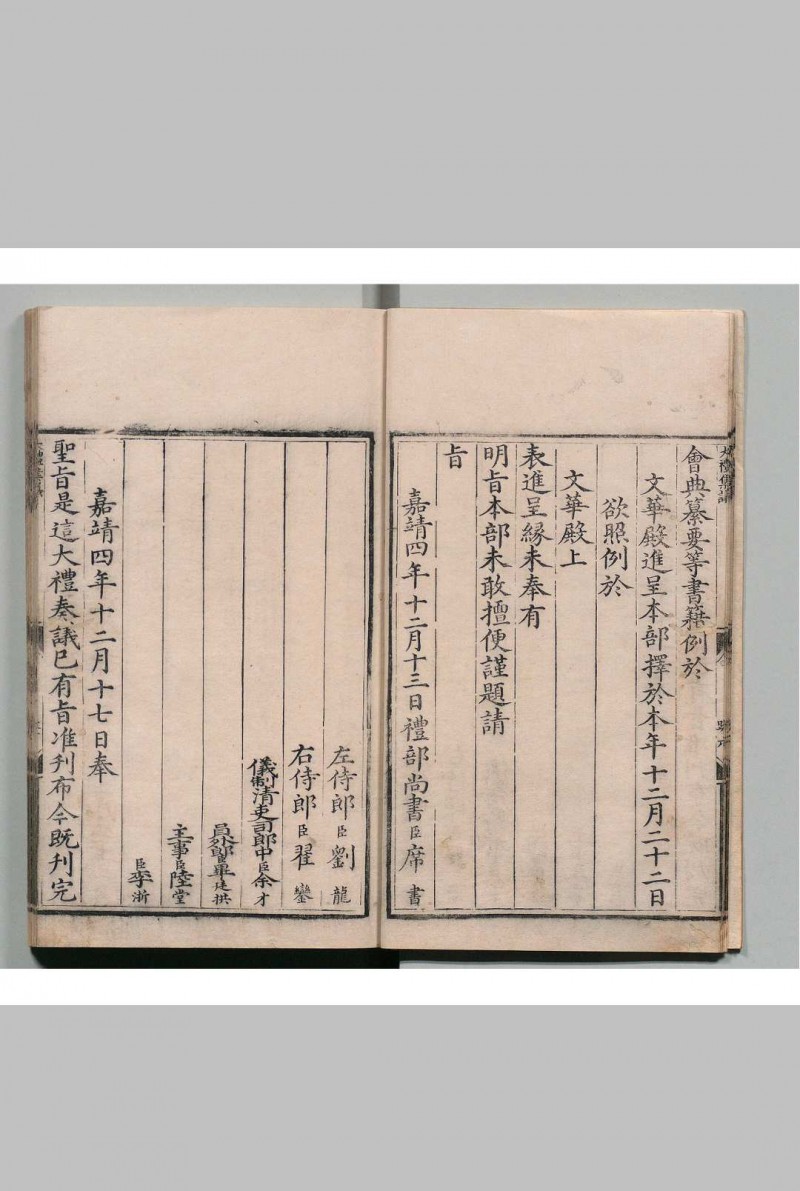 大禮集議
會典纂要等書籍例於
文華殿進呈本部擇於本年十二月二十二日
欲照例於
文華殿上
表進呈緣未奉有
明旨本部未敢擅便謹題請
旨
嘉靖四年十二月十三日禮部尚書臣席書
左侍郎臣劉龍
右侍郎臣翟鑾
儀制清吏司郎中臣余才
員外郎臣畢廷拱
主事臣陸堂
臣李浙
嘉靖四年十二月十七日奉
聖旨是這大禮奏議已有旨准刊布今既刊完